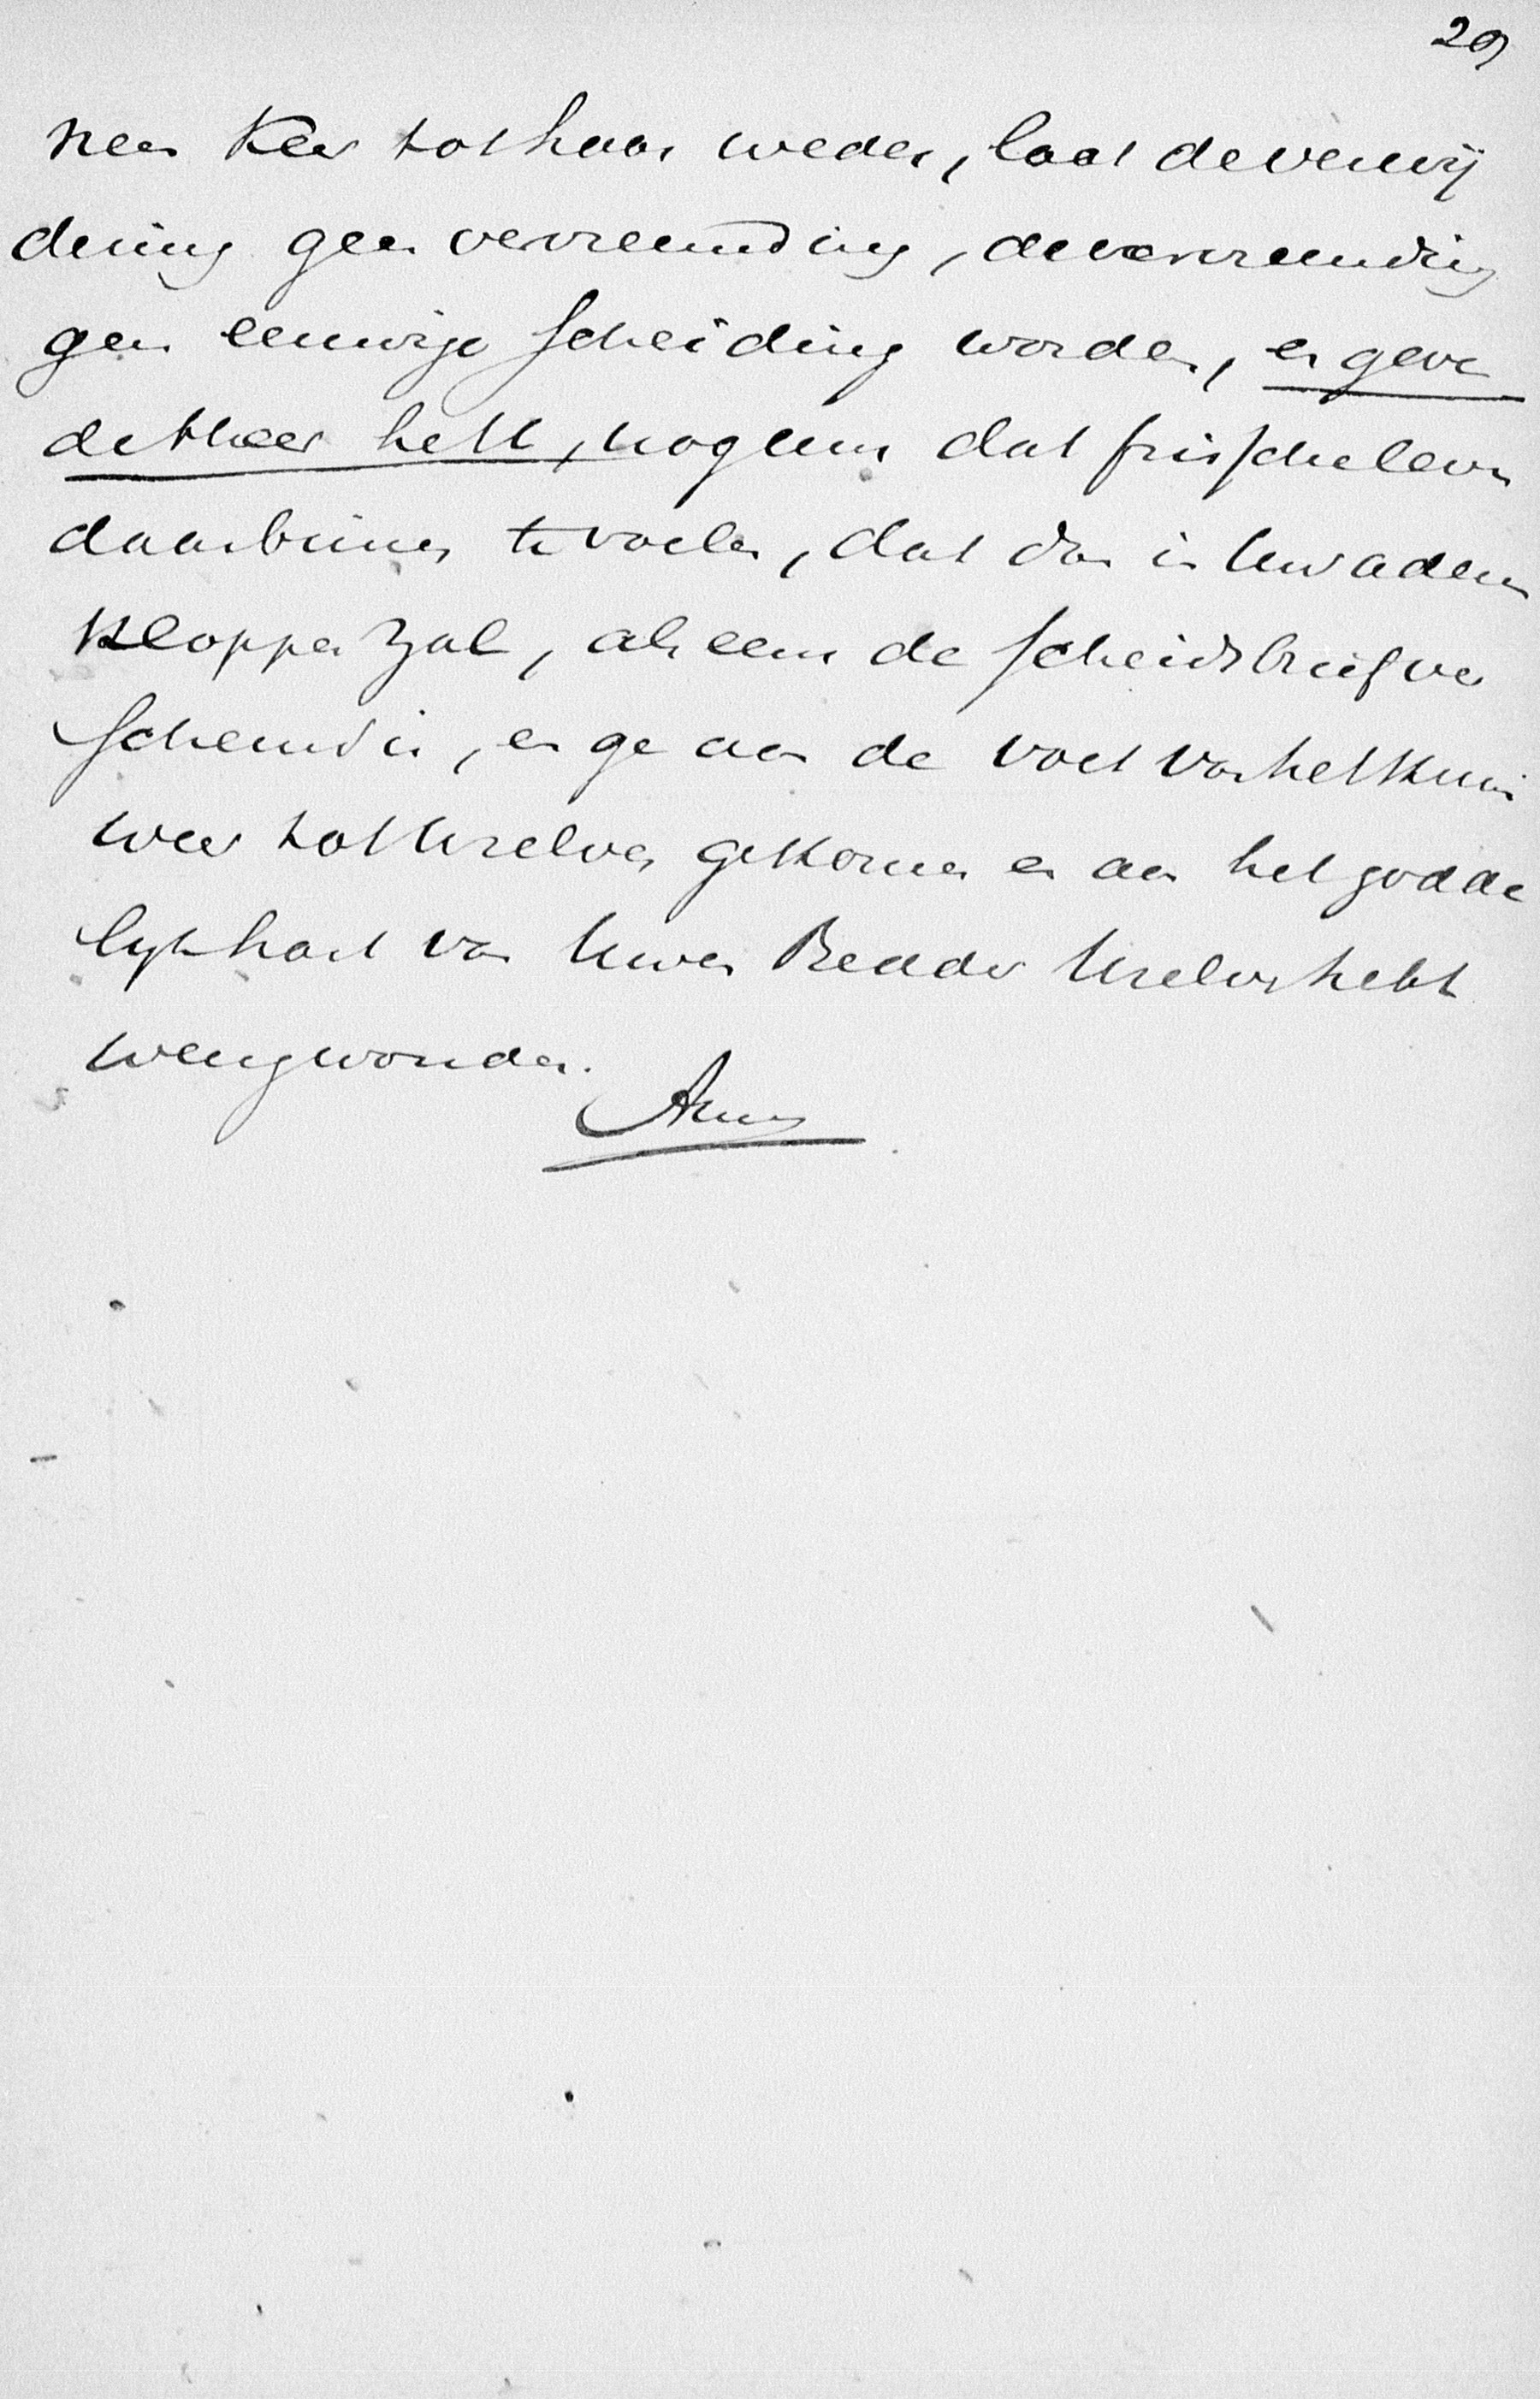 29
neen keer tot haar weder, laat de verwij
dering geen vervreemding, de vervreemding
geen eeuwige scheiding worden, en geve
de Heer het U, nog eens dat frissche leven
daarbinnen te voelen, dat dan in Uw aderen
kloppen zal, als eens de scheidsbrief ver
scheurd is, en ge aan de voet van het kruis
weer tot Uzelven gekomen en aan het godde
lijk hart van Uwen Redder Uzelven hebt
weergevonden.
Amen